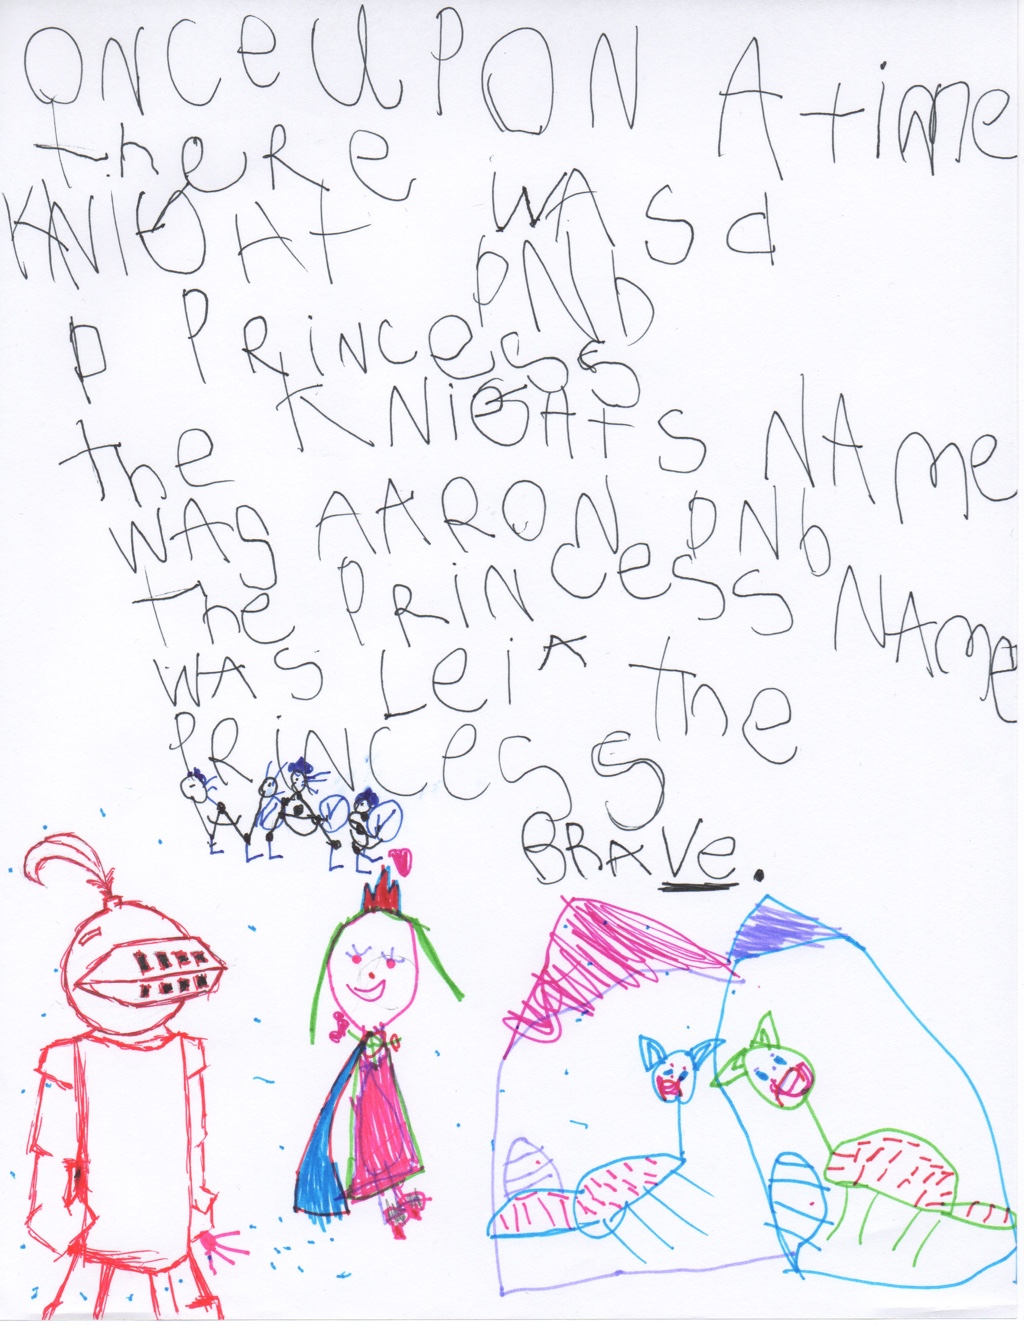 ONCE UPON A time
theRe
KNIGHT WAS a
AND
A PRiNCeSS
the KNiGHTS NAme
WAS AARON AND
the PRiNCeSS NAme
WAS LeiA the
PRiNCeSS
BRAVe.